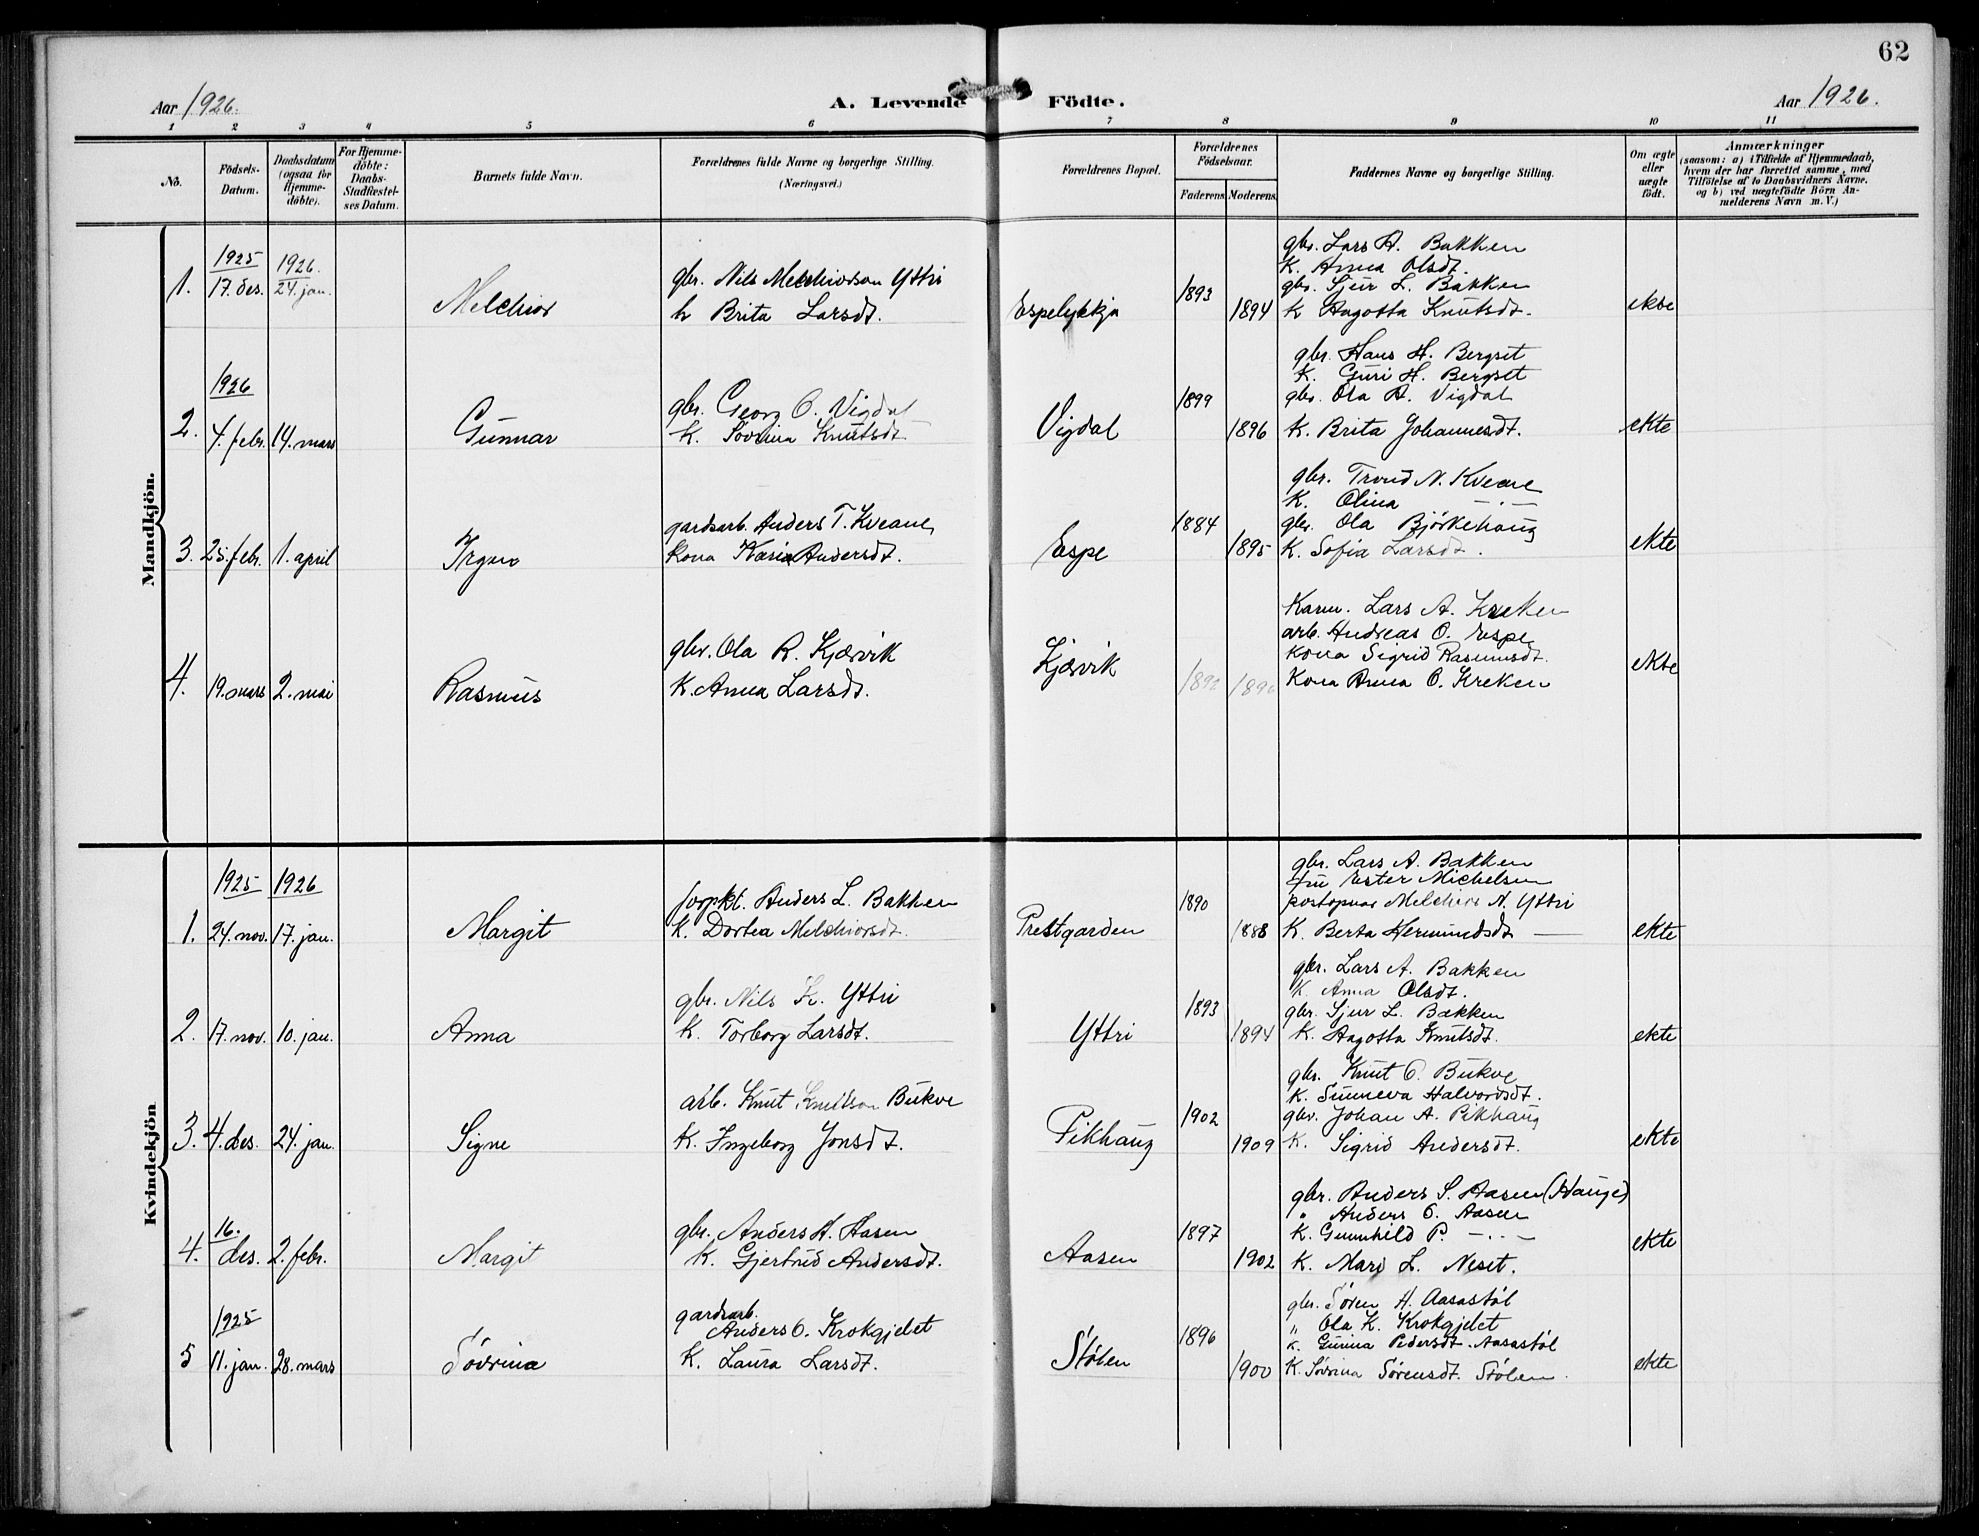 62
Aar 1926.
A. Levende Födte.
Aar 1926.
1 2 3 4 5 6 7 8 9 10 11
No.
Födsels-Datum.
Daabsdatum (ogsaa for Hjemme-döbte).
For Hjemme-döbte: Daabs-Stadfæstel-ses Datum.
Barnets fulde Navn.
Forældrenes fulde Navne og borgerlige Stilling.
(Næringsvei.)
Forældrenes Bopæl.
Forældrenes Födselsaar.
Faderens Moderens
Faddernes Navne og borgerlige Stilling.
Om ægte eller uægte födt.
Anmærkninger
(saasom: a) i Tilfælde af Hjemmedaab, hvem der har forrettet samme, med Tilföielse af to Daabsvidners Navne. og b) ved uægtefödte Börn An-melderens Navn m. V.)
Mandkjön.
1.
1925
17. des.
1926.
24. jan.
Melchior
gbr. Nils Melchiorson Yttri
h Brita Larsdt.
Espelykkja
1893
1894
gbr. Lars A. Bakken
K. Anna Olsdt.
gbr. Sjur L. Bakken
K Angotta Knutsdt.
ekte
2.
1926
4. febr.
14. mars
Gunnar
gbr. Georg O. Vigdal
K. Sövrina Knutsdt.
Vigdal
1899
1896
gbr. Hans H. Bergset
K. Guri H. Bergset
gbr. Ola A. Vigdal
K. Brita Johannesdt.
ekte
3.
25. febr.
1. april
Yngve
gardsarb. Anders T. Kveane,
kona Karia Andersdt.
Espe
1884
1895
gbr. Trond N. Kveane
K. Olina — . —
gbr. Ola Bjørkehaug
K. Sofia Larsdt.
ekte
4.
19. mars
2. mai
Rasmus
gbr. Ola R. Kjærvik
K. Anna Larsdt.
Kjærvik
1892
Karm. Lars A. Kreken
arb. Andreas O. Espe
kona Sigrid Rasmusdt.
Kona Anna O. Kreken
ekte
Kvindekjön
1.
1925
24. nov.
1926
17. jan.
Margit
forpkt. Anders L. Bakken
K. Dortea Melchiorsdt.
Prestgarden
1890
1888
gbr. Lars A. Bakken
fru Ester Michelsen
postopnar Melchior N. Yttri
K. Berta Hermundsdt —
ekte
2.
17. nov.
10. jan.
Anna
gbr. Nils K. Yttri
K. Torborg Larsdt.
Yttri
1893
1894
gbr. Lars A. Bakken
K. Anna Olsdt.
gbr. Sjur L. Bakken
K. Angotta Knutsdt.
ekte
3.
4. des.
24. jan.
Signe
arb. Knut Knutson Bukve
K. Ingeborg Jonsdt.
Pikhaug
1902
1909
gbr. Knut O. Bukve
K. Sunneva Halvordsdt.
gbr. Johan A. Pikhaug
K. Sigrid Andersdt.
ekte
4.
16.
des.
2. febr.
Margit
gbr. Anders A. Aasen
K. Gjertrud Andersdt.
Aasen
1897
1902
gbr. Anders S. Aasen (Hauge)
" Anders O. Aasen
K. Gunnhild P. — . —
K. Mari L. Neset.
ekte
5
1925
11. jan.
28. mars
Sövrina
gardsarb.
Anders O. Krokgjelet
K. Laura Larsdt.
Stølen
1896
1900
gbr. Sören A. Aasastøl
" Ola K. Krokgjelet
K. Gurina Pedersdt. Aasastøl
K. Sövrina Sörensdt. Stølen.
ekte